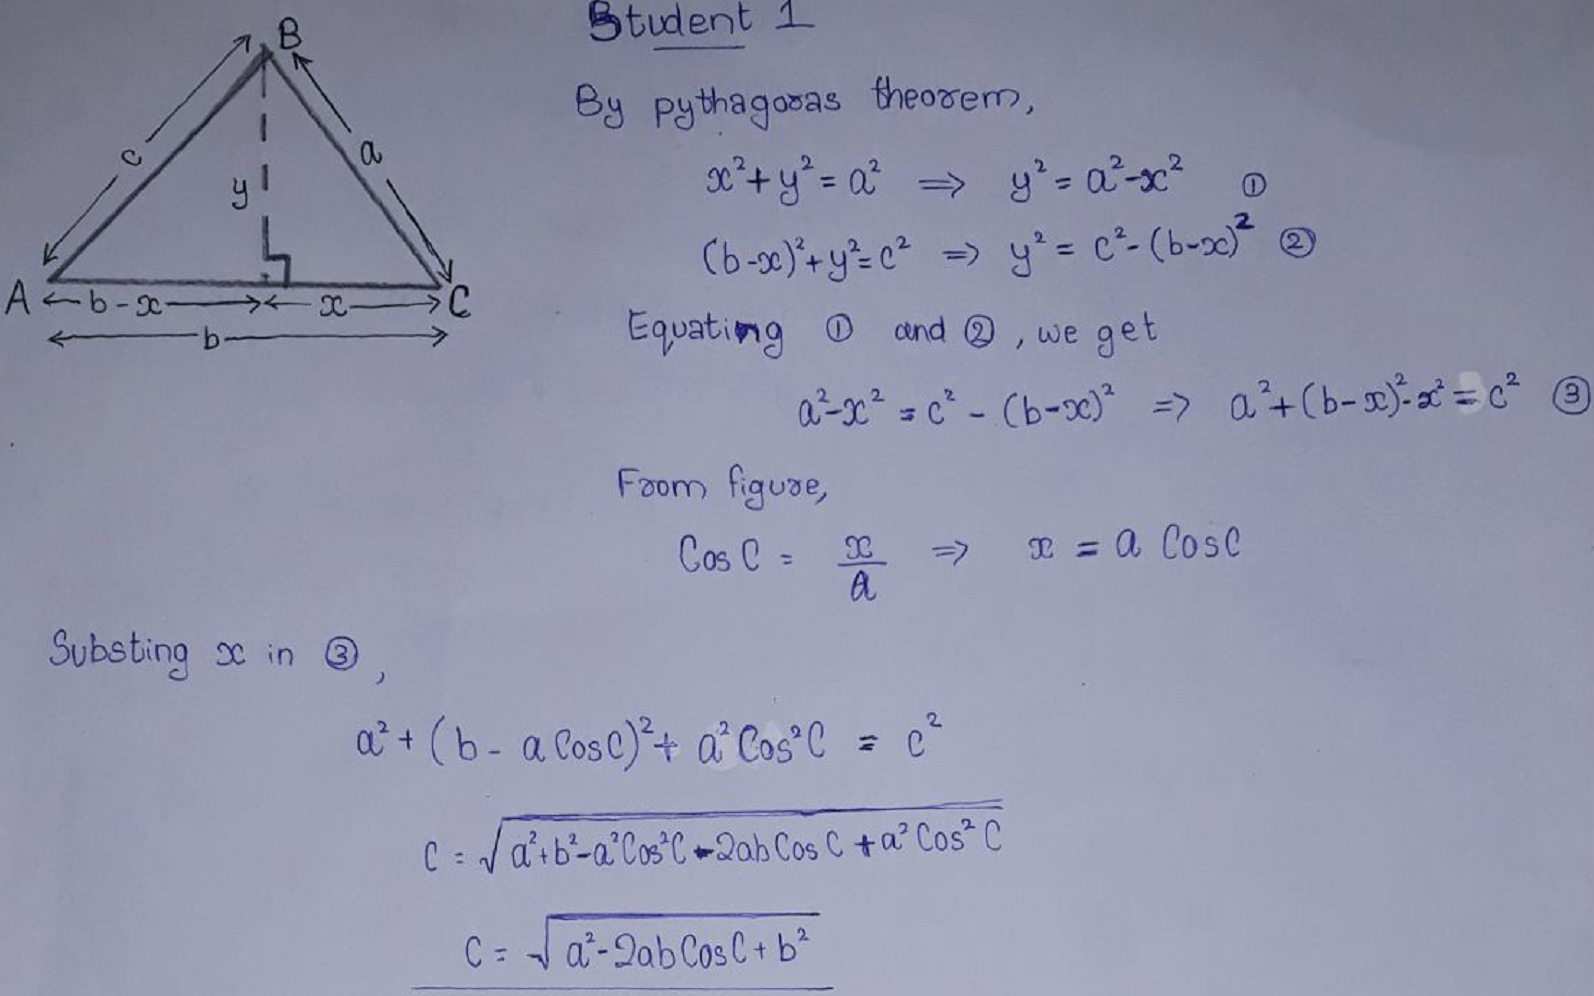 Student 1
B
By pythagoras theorem,
c
a
y
x²+y²=a² ⇒ y²=a²-x² ①
(b-x)²+y²=c² ⇒ y²=c²-(b-x)² ②
A b-x x C
b
Equating ① and ②, we get
a²-x²=c²-(b-x)² ⇒ a²+(b-x)²-x²=c² ③
From figure,
Cos C = x/a ⇒ x = a Cos C
Substing x in ③,
a²+(b-a Cos C)²+a² Cos² C = c²
C = √(a²+b²-a²Cos²C-2ab Cos C+a² Cos² C)
C = √(a²-2ab Cos C+b²)